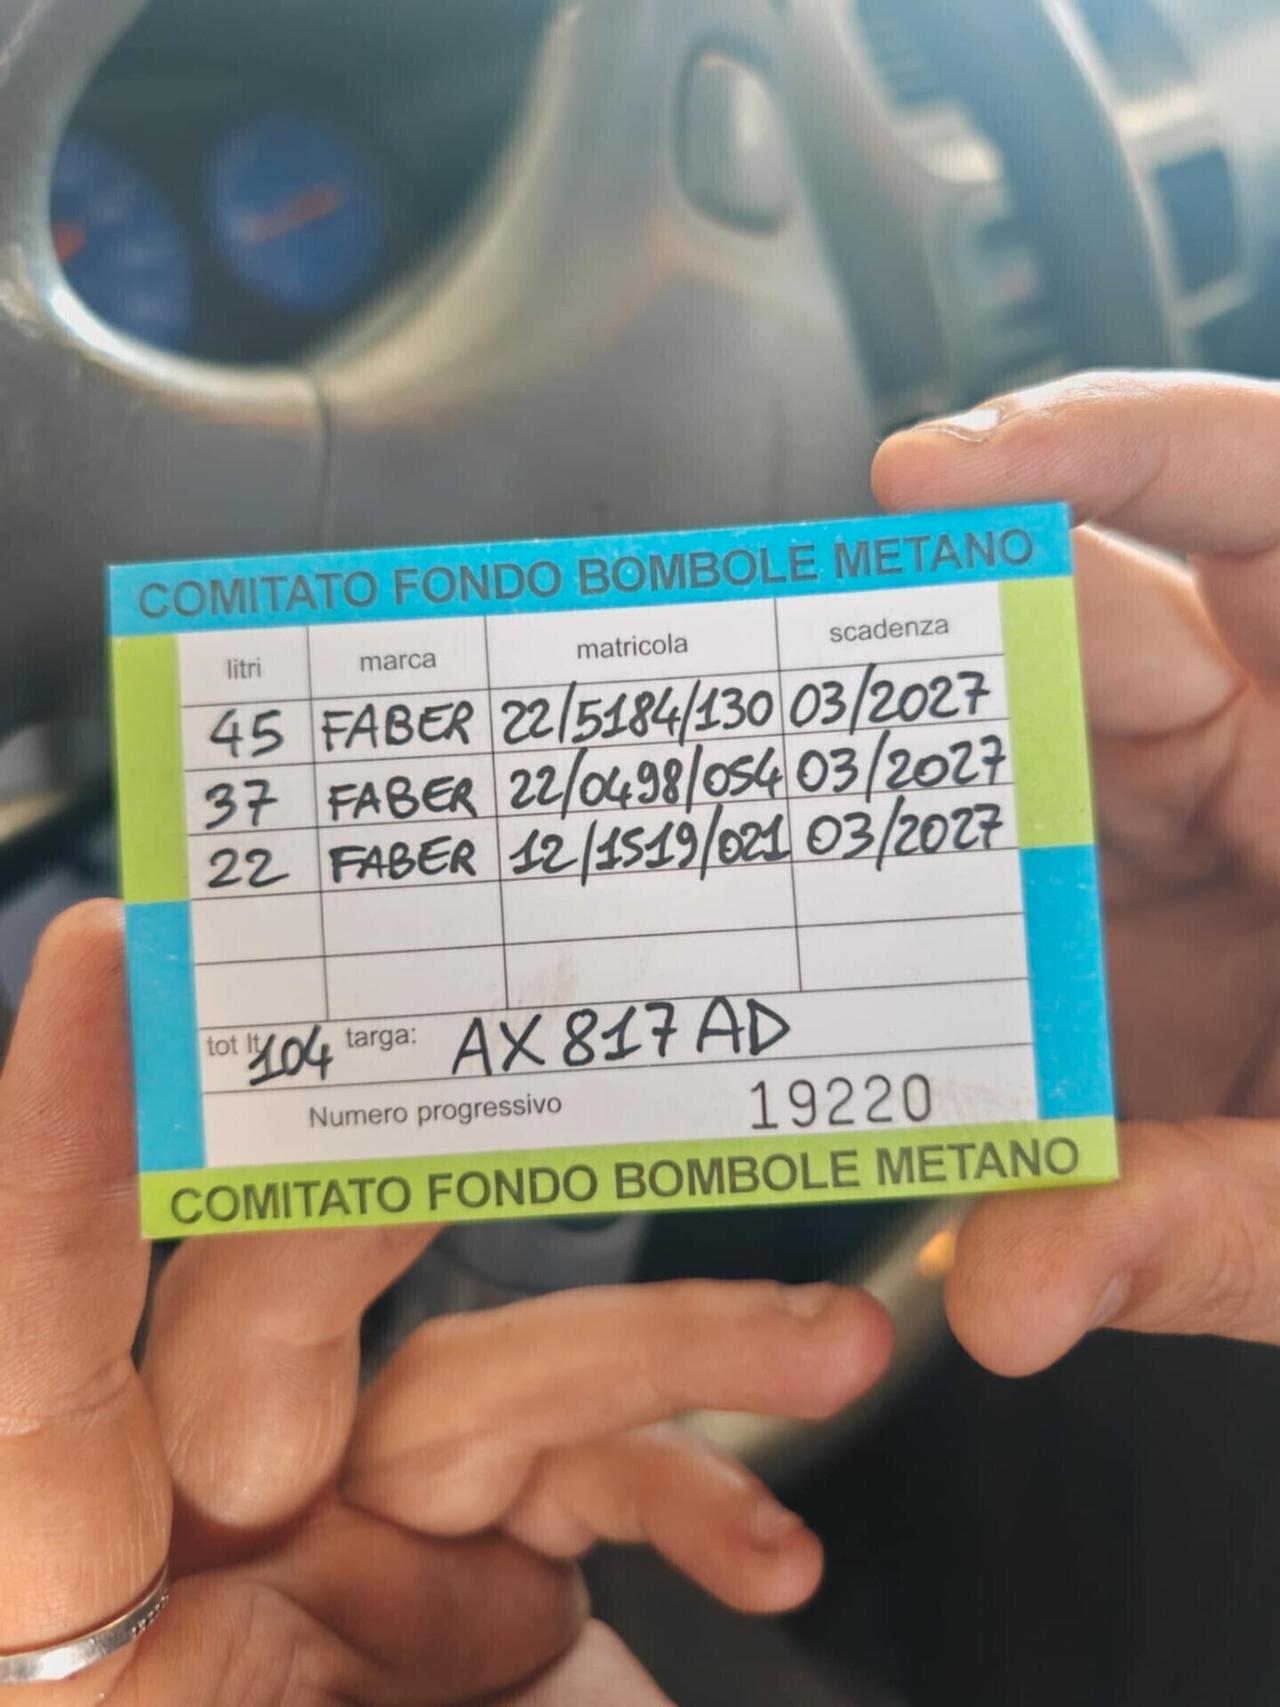 COMITATO FONDO BOMBOLE METANO
litri marca matricola scadenza
45 FABER 22/5184/130 03/2027
37 FABER 22/0498/054 03/2027
22 FABER 12/1519/021 03/2027
tot lt 104 targa: AX 817 AD
Numero progressivo 19220
COMITATO FONDO BOMBOLE METANO